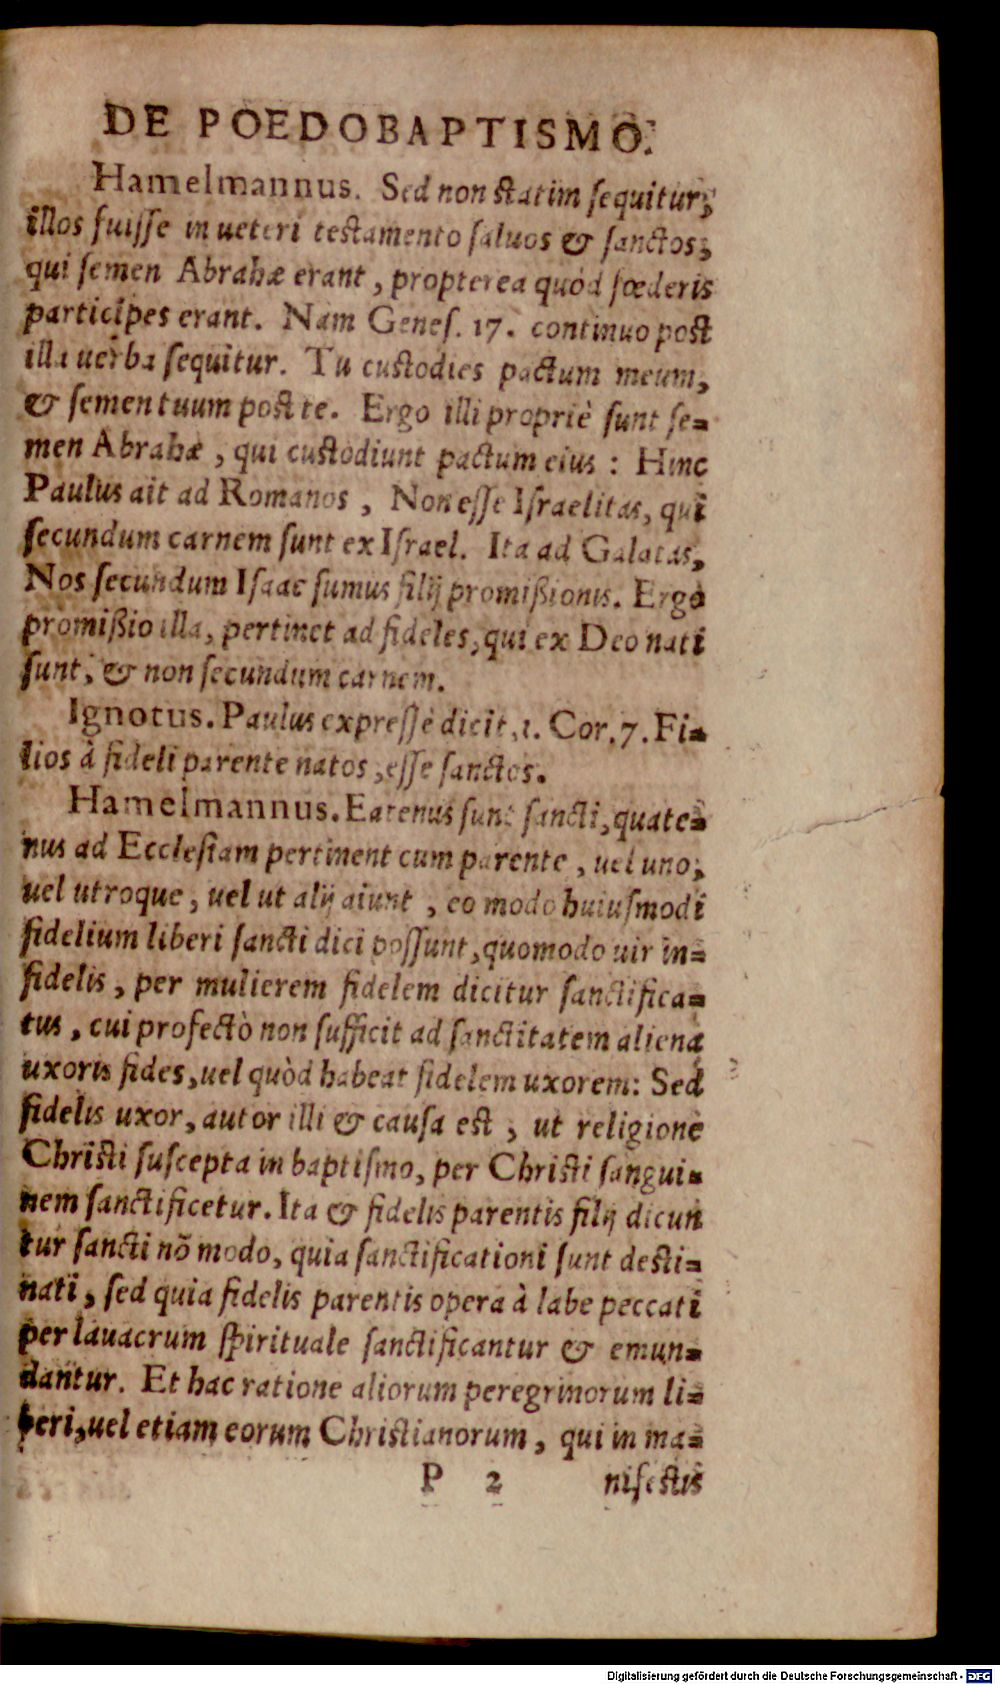 DE POEDOBAPTISMO.
Hamelmannus. Sed non statim sequitur,
illos fuisse in ueteri testamento saluos & sanctos,
qui semen Abrahæ erant, propterea quòd fœderis
participes erant. Nam Genes. 17. continuo post
illa uerba sequitur. Tu custodies pactum meum,
& semen tuum post te. Ergo illi propriè sunt se-
men Abrahæ, qui custodiunt pactum eius: Hinc
Paulus ait ad Romanos, Non esse Israelitas, qui
secundum carnem sunt ex Israel. Ita ad Galatas,
Nos secundum Isaac sumus filij promißionis. Ergo
promißio illa, pertinet ad fideles, qui ex Deo nati
sunt, & non secundum carnem.
Ignotus. Paulus expressè dicit, 1. Cor. 7. Fi-
lios à fideli parente natos, esse sanctos.
Hamelmannus. Eatenus sunt sancti, quate-
nus ad Ecclesiam pertinent cum parente, uel uno,
uel utroque, uel ut alij aiunt, eo modo huiusmodi
fidelium liberi sancti dici possunt, quomodo uir in-
fidelis, per mulierem fidelem dicitur sanctifica-
tus, cui profectò non sufficit ad sanctitatem aliena
uxoris fides, uel quòd habeat fidelem uxorem: Sed
fidelis uxor, autor illi & causa est, ut religione
Christi suscepta in baptismo, per Christi sangui-
nem sanctificetur. Ita & fidelis parentis filij dicun
tur sancti nõ modo, quia sanctificationi sunt desti-
nati, sed quia fidelis parentis opera à labe peccati
per lauacrum spirituale sanctificantur & emun-
dantur. Et hac ratione aliorum peregrinorum li-
beri, uel etiam eorum Christianorum, qui in ma-
P 2 nifestis
Digitalisierung gefördert durch die Deutsche Forschungsgemeinschaft - DFG